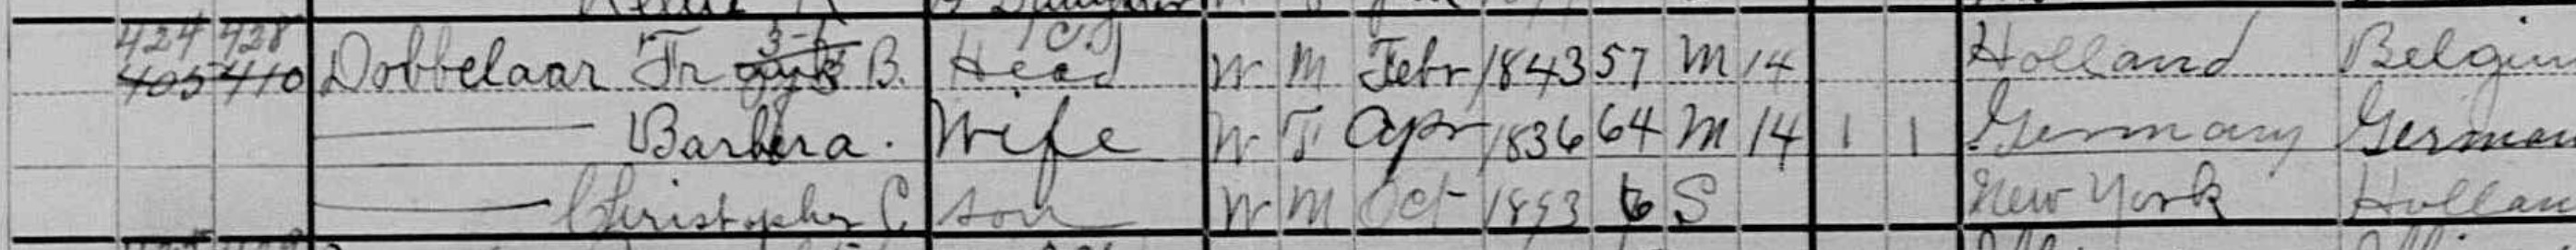 424 428
405 410 Dobbelaar Fr B. Head W M Febr 1843 57 M 14 Holland Belgium
Barbera. Wife W F Apr 1836 64 M 14 1 1 Germany German
Christopher C. son W M Oct 1893 6 S New York Hollan